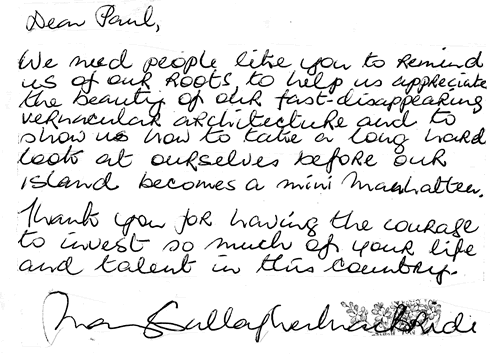 Dear Paul,
We need people like you to remind
us of our roots to help us appreciate
the beauty of our fast-disappearing
vernacular architecture and to
show us how to take a long hard
look at ourselves before our
island becomes a mini Manhatten.
Thank you for having the courage
to invest so much of your life
and talent in this country.